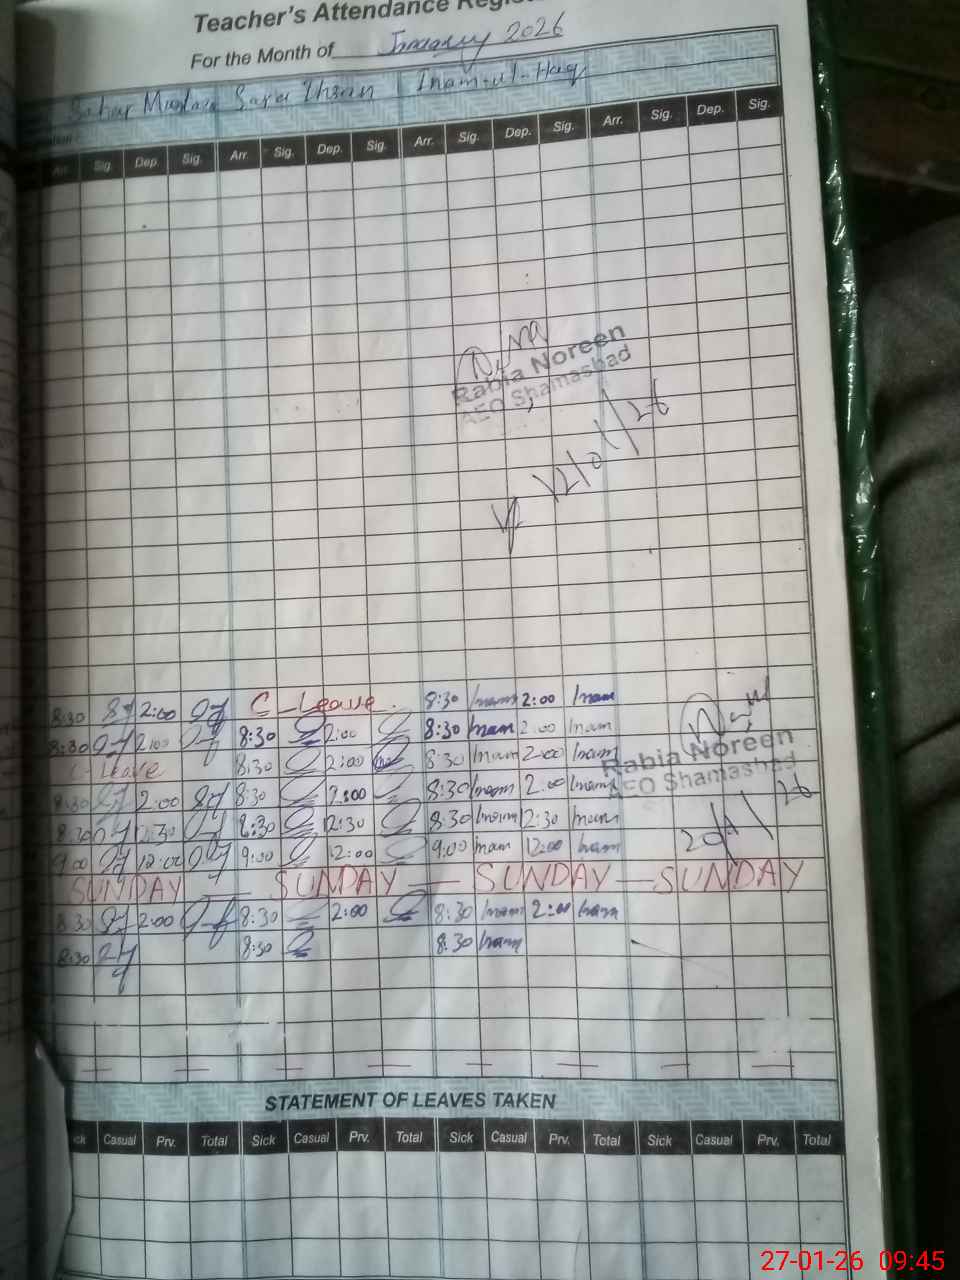 Teacher's Attendance
For the Month of January 2026
Sara Ihsan Inam-ul-Haq
Arr. Sig. Dep. Sig. Arr. Sig. Dep. Sig. Arr. Sig. Dep. Sig. Arr. Sig. Dep. Sig.
Rabia Noreen
AEO Shamasbad
12/01/26
8:30 2:00 C-Leave. 8:30 Inam 2:00 Inam
8:30 2:00 8:30 2:00 8:30 Inam 2:00 Inam
C-Leave 8:30 2:00 8:30 Inam 2:00 Inam
Rabia Noreen
AEO Shamasbad
8:30 2:00 8:30 2:00 8:30 Inam 2:00 Inam
8:30 12:30 8:30 12:30 8:30 Inam 12:30 Inam
9:00 12:00 9:00 12:00 9:00 Inam 12:00 Inam
SUNDAY — SUNDAY — SUNDAY — SUNDAY
8:30 2:00 8:30 2:00 8:30 Inam 2:00 Inam
8:30 8:30 8:30 Inam
STATEMENT OF LEAVES TAKEN
Casual Prv. Total Sick Casual Prv. Total Sick Casual Prv. Total Sick Casual Prv. Total
27-01-26 09:45